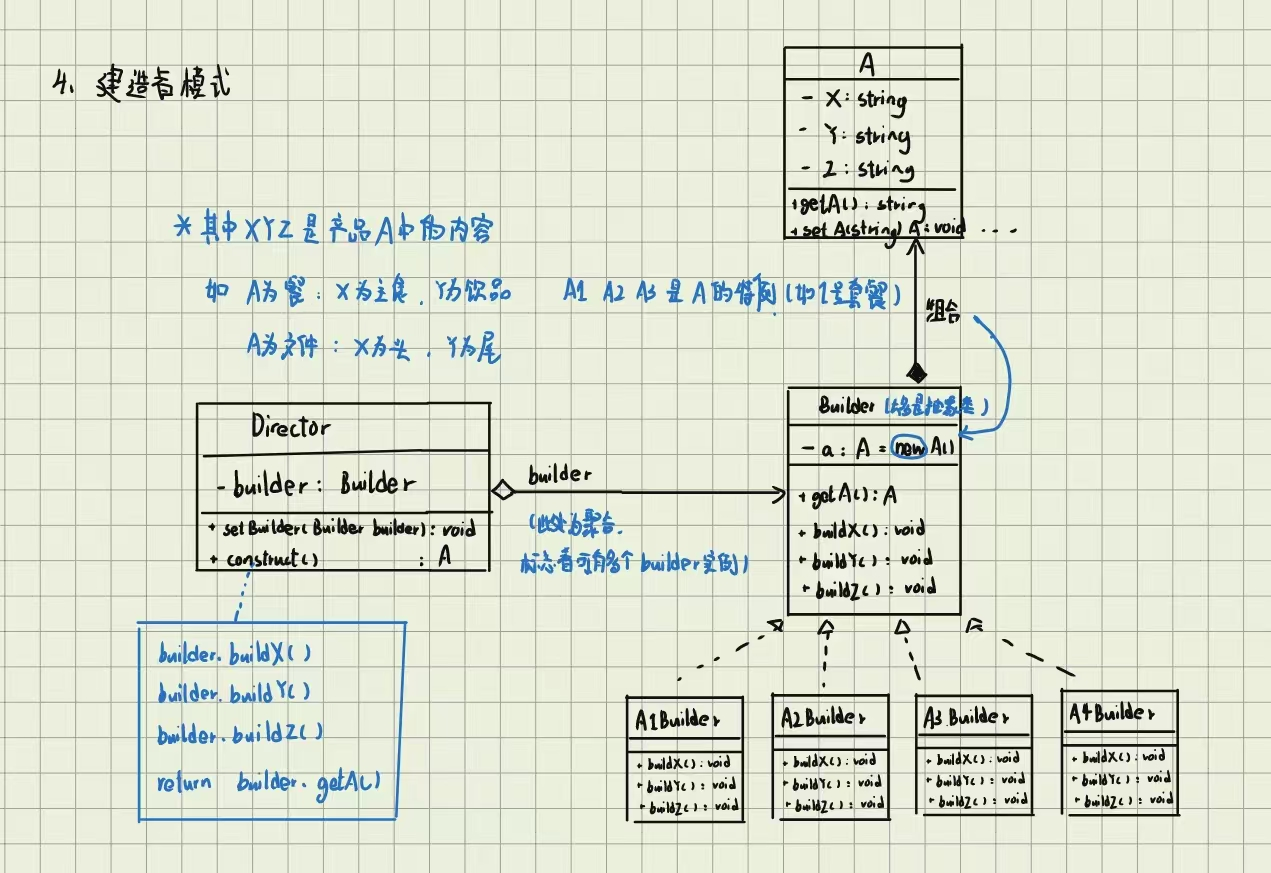 4、建造者模式
A
- X: string
- Y: string
- Z: string
+getA(): string
+set A(string) A: void ...
*其中XYZ是产品A中的内容
如 A为餐：X为主食，Y为饮品 A1 A2 A3 是A的特例(如1是套餐)
A为文件：X为头，Y为尾
组合
Director
- builder: Builder
+ setBuilder(Builder builder): void
+ construct() : A
builder
(此处为聚合,
标志着可有多个builder实例)
Builder (是抽象类)
- a: A = new A()
+ getA(): A
+ buildX(): void
+ buildY(): void
+ buildZ(): void
builder.buildX()
builder.buildY()
builder.buildZ()
return builder.getA()
A1Builder
+ buildX(): void
+ buildY(): void
+ buildZ(): void
A2Builder
+ buildX(): void
+ buildY(): void
+ buildZ(): void
A3 Builder
+ buildX(): void
+ buildY(): void
+ buildZ(): void
A4Builder
+ buildX(): void
+ buildY(): void
+ buildZ(): void